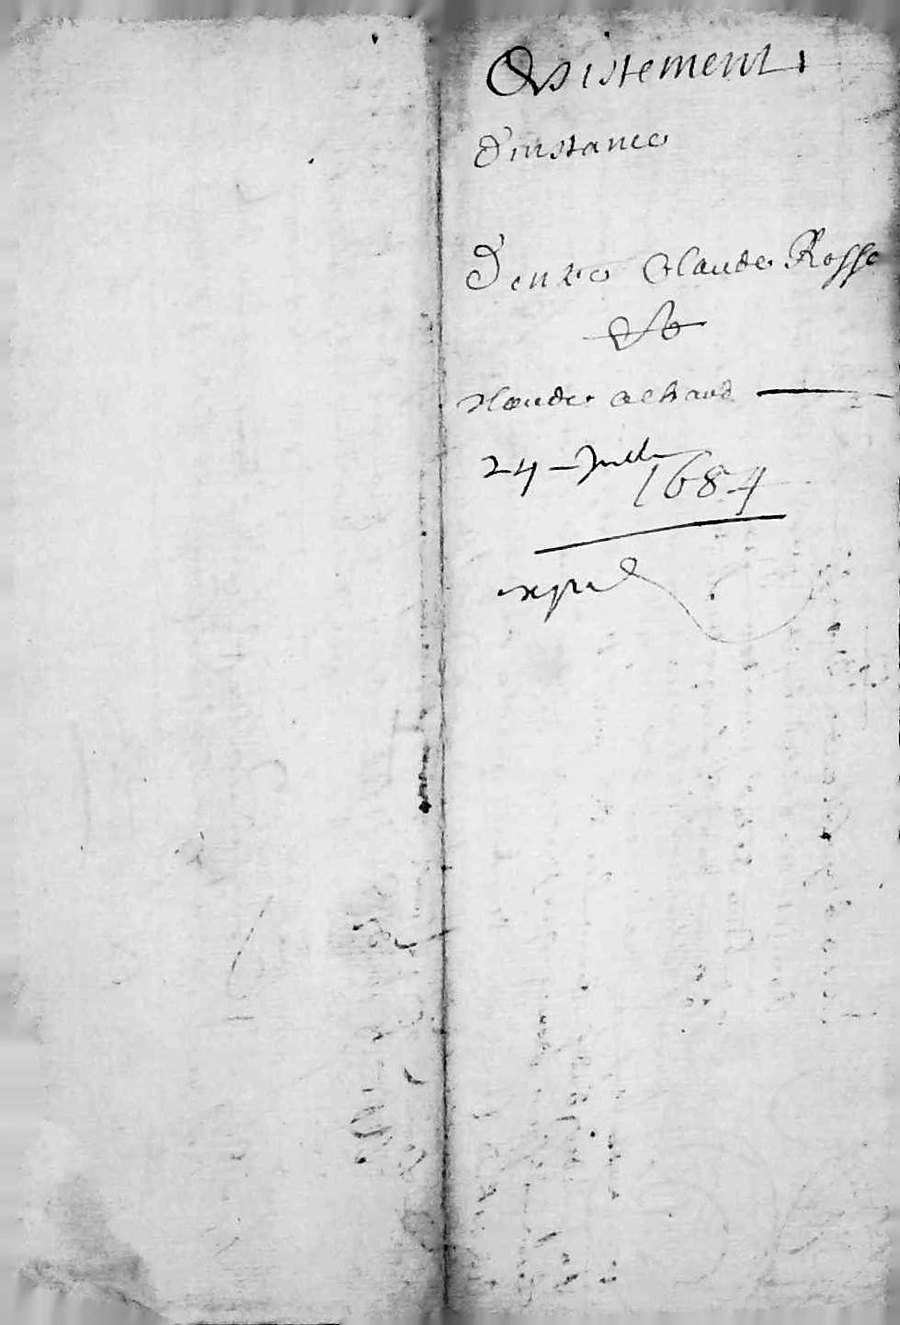 Desistement
d'instance
D'entre Claude Rosse
Et
Claude Achard
24 Juill
1684
exped